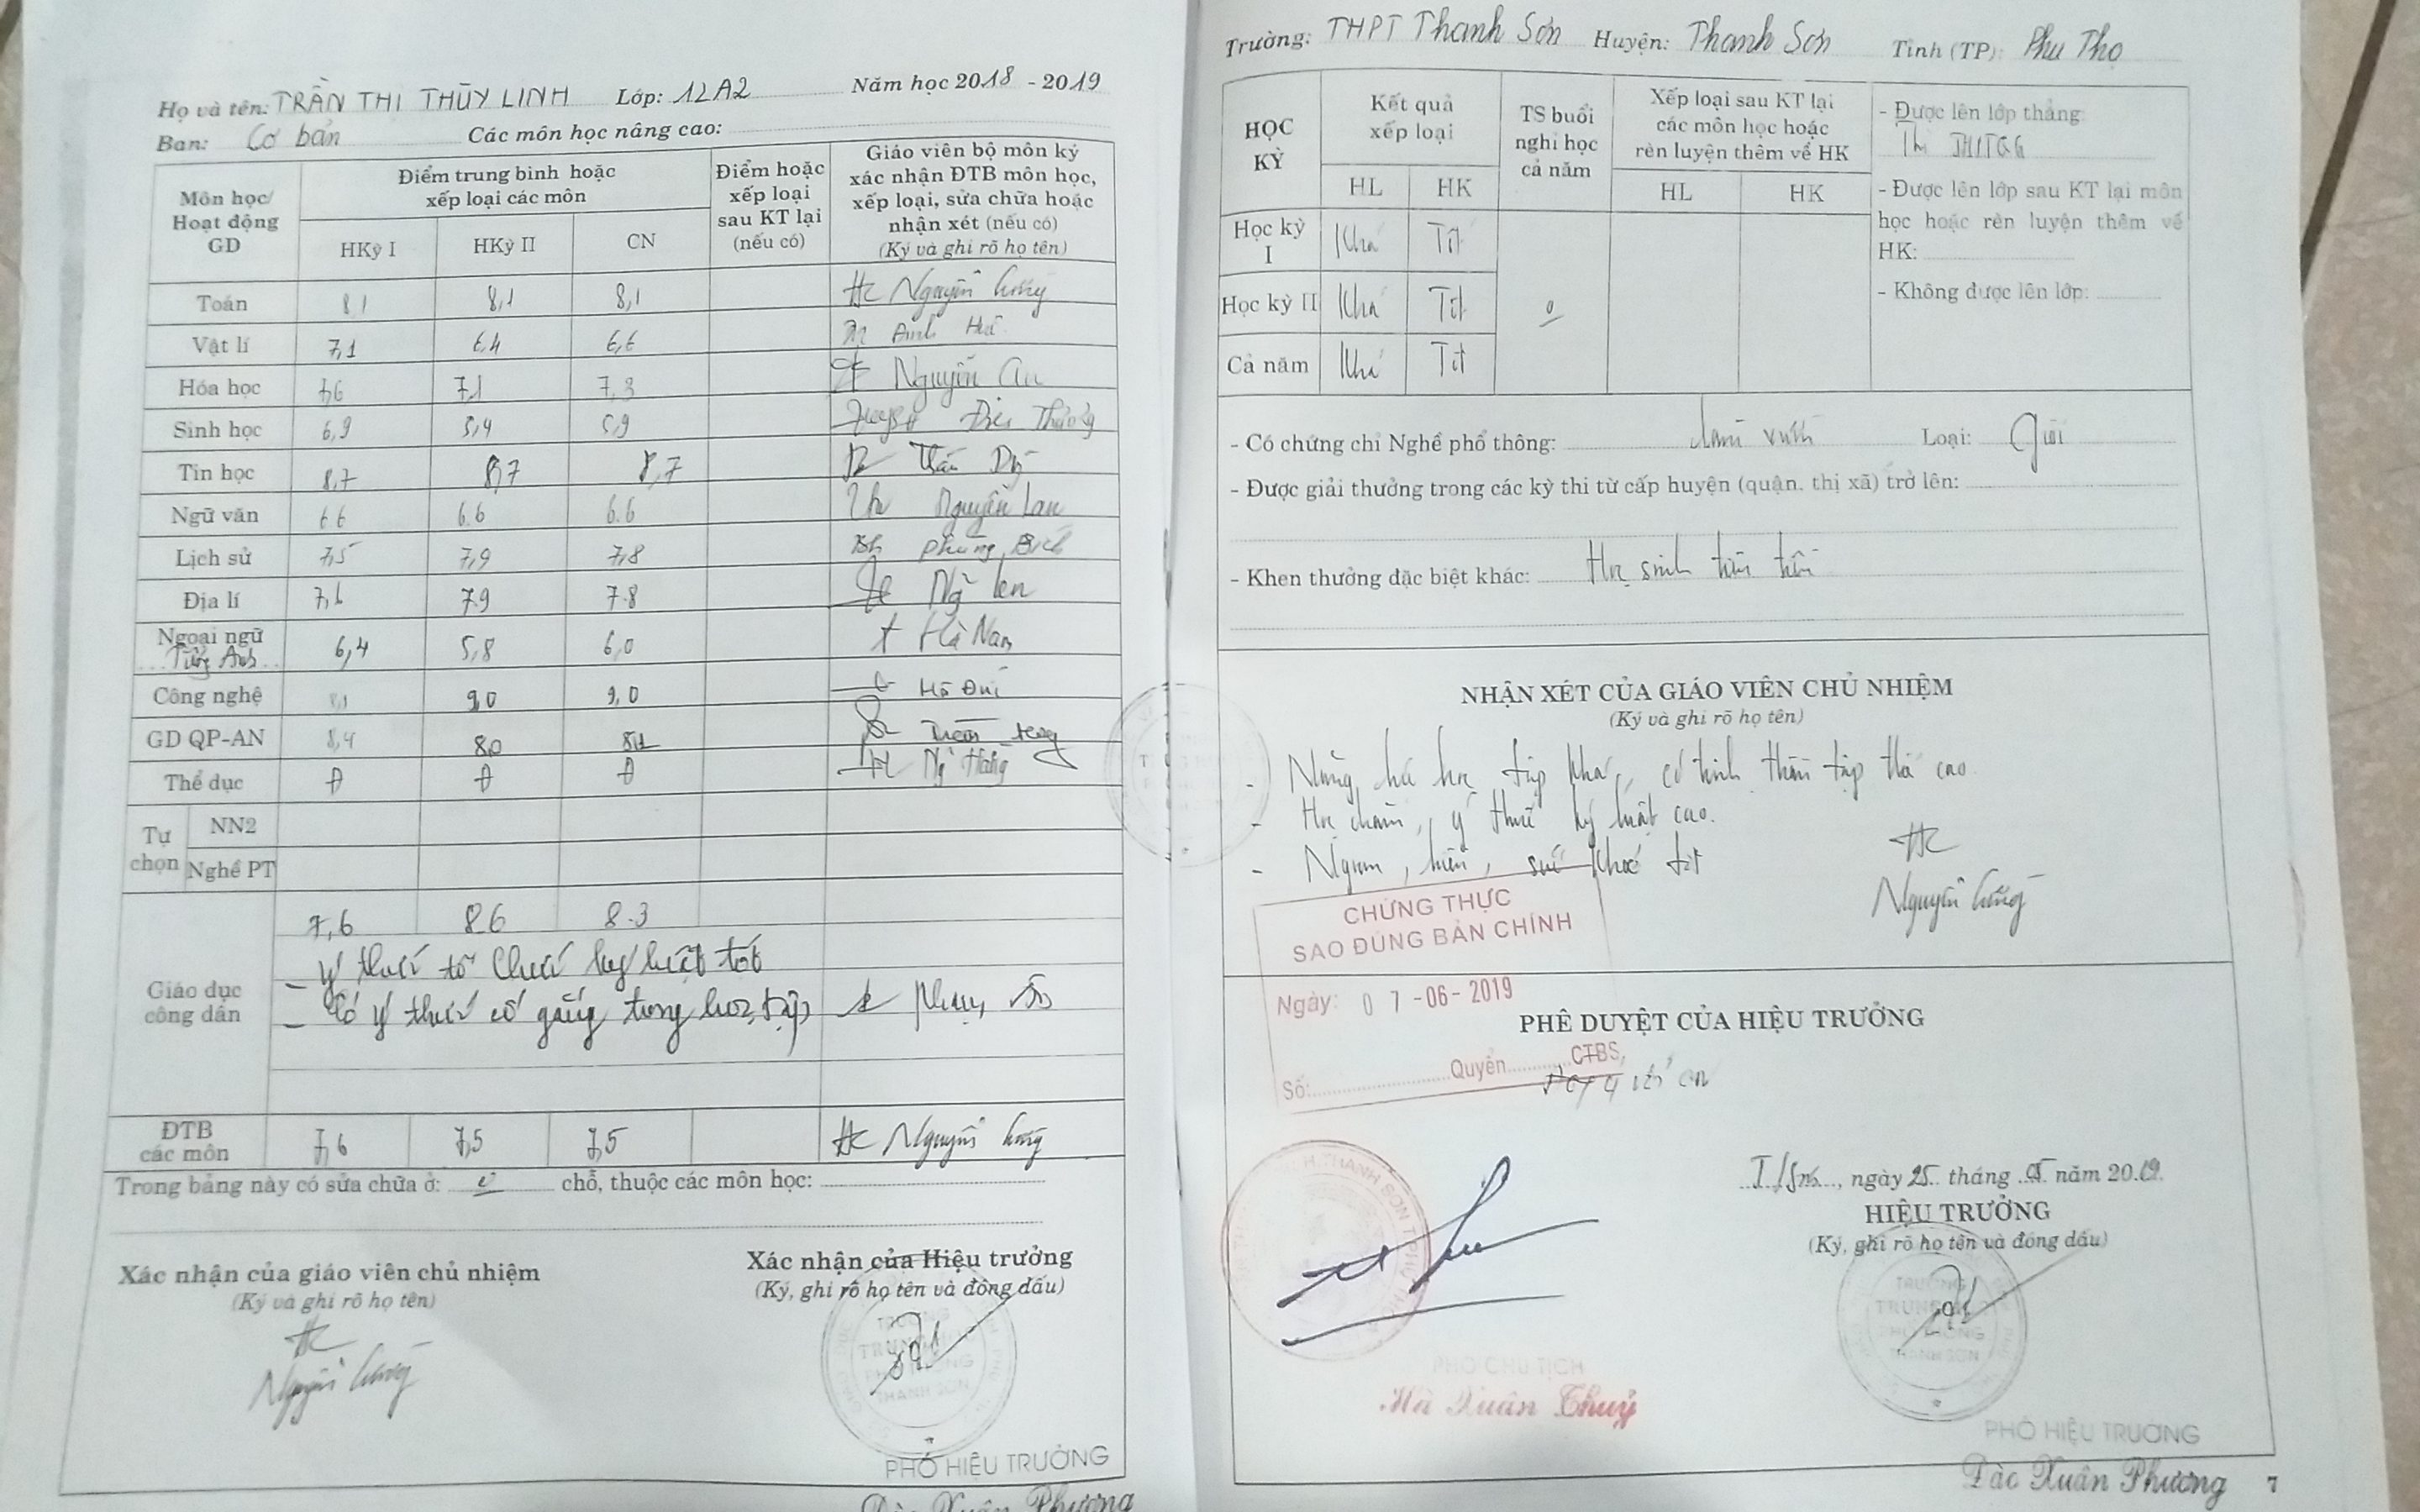 Họ và tên: TRẦN THỊ THÙY LINH Lớp: 12A2 Năm học 2018 - 2019
Ban: Cơ bản Các môn học nâng cao:
Môn học/ Hoạt động GD
Điểm trung bình hoặc xếp loại các môn
HKỳ I HKỳ II CN
Điểm hoặc xếp loại sau KT lại (nếu có)
Giáo viên bộ môn ký xác nhận ĐTB môn học, xếp loại, sửa chữa hoặc nhận xét (nếu có)
(Ký và ghi rõ họ tên)
Toán 8,1 8,1 8,1 Nguyễn
Vật lí 7,1 6,4 6,6 Anh
Hóa học 7,6 7,1 7,3 Nguyễn An
Sinh học 6,9 5,4 5,9
Tin học 8,7 8,7 8,7
Ngữ văn 6.6 6.6 6.6 Nguyễn Lan
Lịch sử 7,5 7,9 7,8 Phùng Bích
Địa lí 7.9 7.8
Ngoại ngữ Tiếng Anh 6,4 5,8 6,0 Hà Nam
Công nghệ 9,0 9,0
GD QP-AN 8,4 8,0
Thể dục Đ Đ Đ
Tự chọn
NN2
Nghề PT
Giáo dục công dân 7,6 8.6 8.3
- Ý thức tổ chức kỷ luật tốt
- Có ý thức cố gắng trong học tập
ĐTB các môn 7,6 7,5 7,5 Nguyễn
Trong bảng này có sửa chữa ở: 0 chỗ, thuộc các môn học:
Xác nhận của giáo viên chủ nhiệm
(Ký và ghi rõ họ tên)
Nguyễn
Xác nhận của Hiệu trưởng
(Ký, ghi rõ họ tên và đóng dấu)
PHÓ HIỆU TRƯỞNG
Đào Xuân Phương
Trường: THPT Thanh Sơn Huyện: Thanh Sơn Tỉnh (TP): Phú Thọ
HỌC KỲ
Kết quả xếp loại
HL HK
TS buổi nghỉ học cả năm
Xếp loại sau KT lại các môn học hoặc rèn luyện thêm về HK
HL HK
Học kỳ I Khá Tốt
Học kỳ II Khá Tốt 0
Cả năm Khá Tốt
- Được lên lớp thẳng:
Thi THPTQG
- Được lên lớp sau KT lại môn
học hoặc rèn luyện thêm về
HK:
- Không được lên lớp:
- Có chứng chỉ Nghề phổ thông: Làm vườn Loại: Giỏi
- Được giải thưởng trong các kỳ thi từ cấp huyện (quận, thị xã) trở lên:
- Khen thưởng đặc biệt khác: Học sinh tiên tiến
NHẬN XÉT CỦA GIÁO VIÊN CHỦ NHIỆM
(Ký và ghi rõ họ tên)
- Năng lực học tập khá, có tinh thần tập thể cao.
- Học chăm, ý thức kỷ luật cao.
- Ngoan, hiền, sức khoẻ tốt
Nguyễn
CHỨNG THỰC
SAO ĐÚNG BẢN CHÍNH
Ngày: 07-06-2019
Số: Quyển CTBS
PHÊ DUYỆT CỦA HIỆU TRƯỞNG
T/Sơn, ngày 25 tháng 05 năm 2019
HIỆU TRƯỞNG
(Ký, ghi rõ họ tên và đóng dấu)
TRƯỜNG
TRUNG HỌC
PHỔ THÔNG
THANH SƠN
PHÓ CHỦ TỊCH
Hà Xuân Thuỷ
PHÓ HIỆU TRƯỞNG
Đào Xuân Phương
7